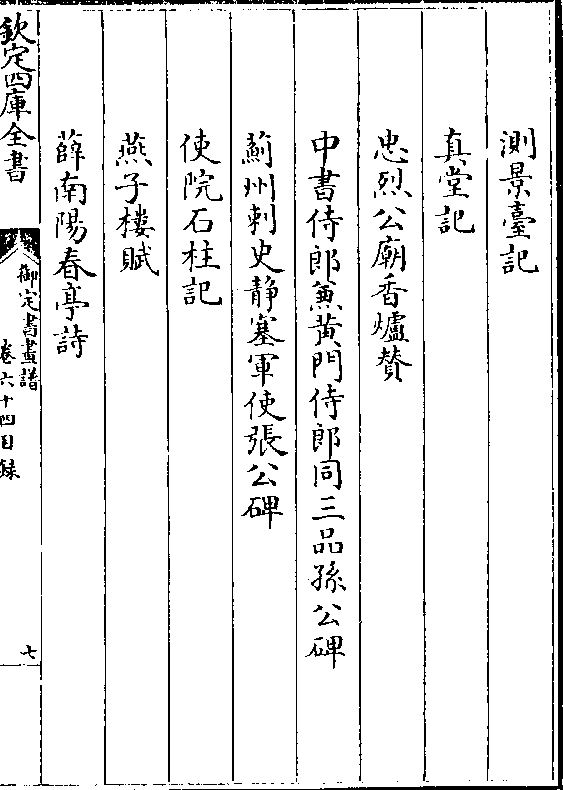 測景臺記
真堂記
忠烈公廟香爐賛
中書侍郎兼黄門侍郎同三品孫公碑
薊州刺史静塞軍使張公碑
使院石柱記
燕子樓賦
薛南陽春亭詩
欽定四庫全書
御定書畫譜
卷六十四目録
七